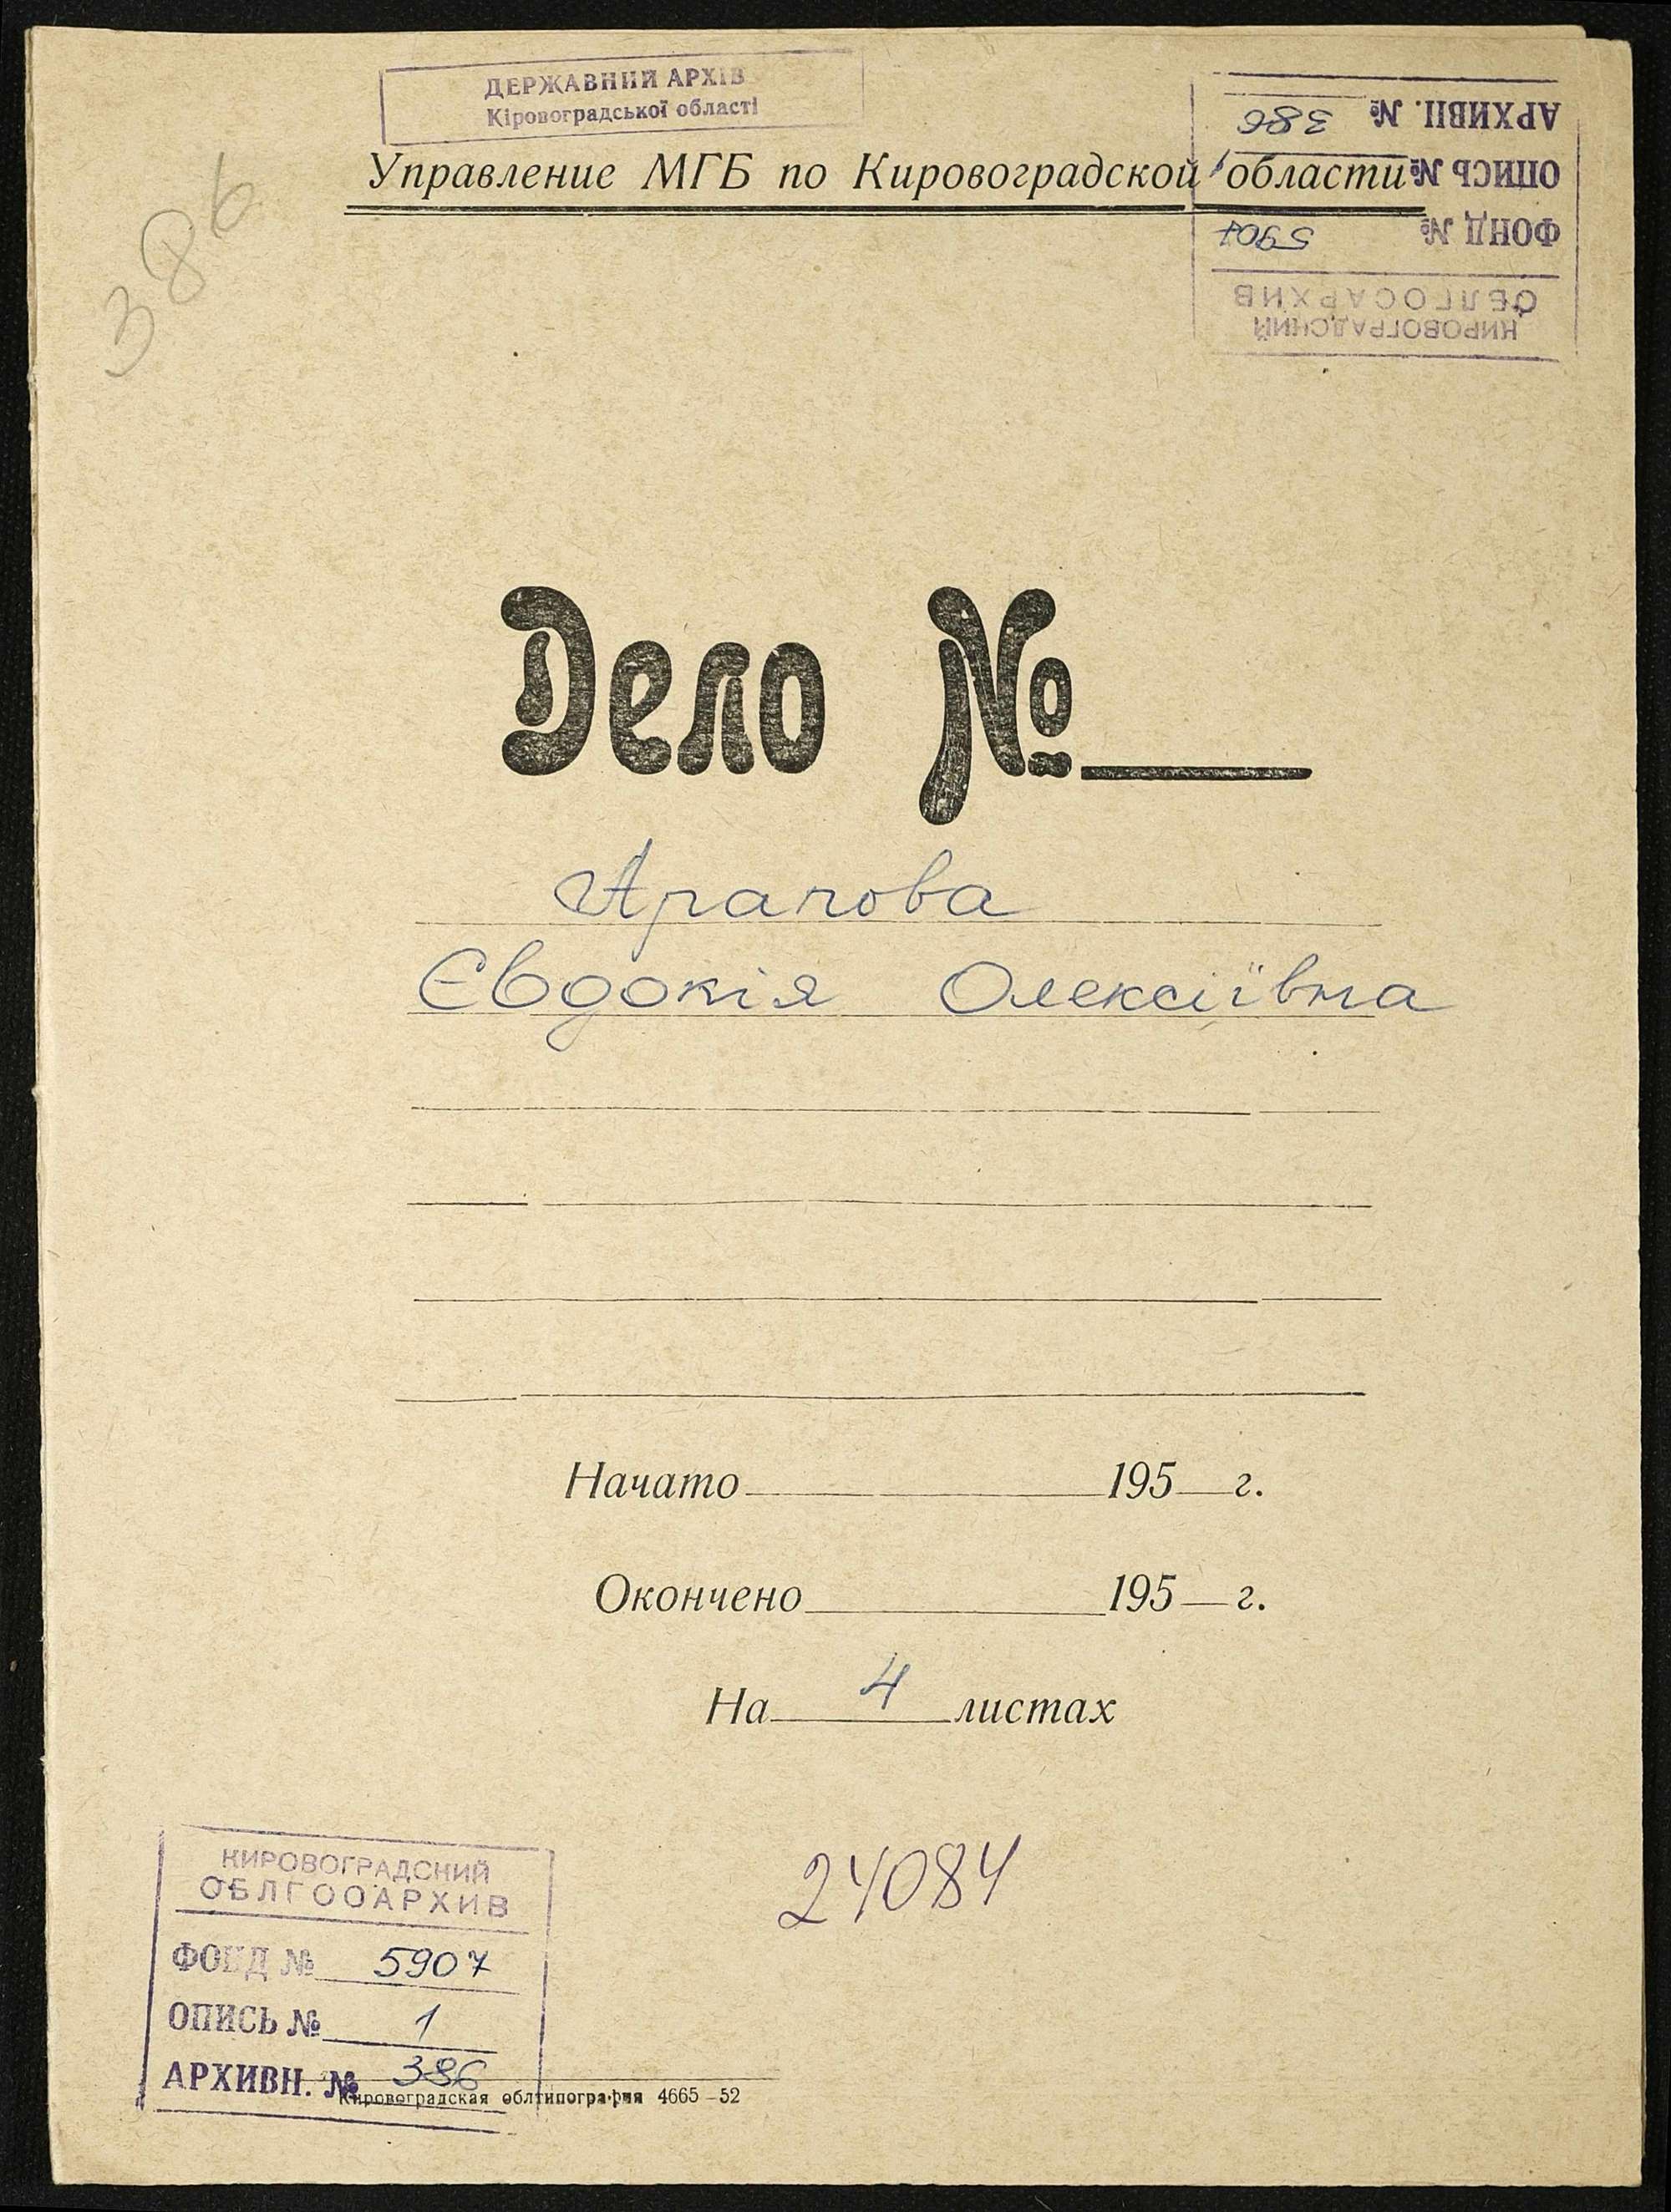 ДЕРЖАВНИЙ АРХІВ
Кіровоградської області
АРХИВН. № 386
ОПИСЬ № 1
ФОНД № 5907
КИРОВОГРАДСКИЙ
ОБЛГОСАРХИВ
386
Управление МГБ по Кировоградской области
Дело №
Арапова
Євдокія Олексіївна
Начато 195 г.
Окончено 195 г.
На 4 листах
24084
КИРОВОГРАДСКИЙ
ОБЛГОСАРХИВ
ФОНД № 5907
ОПИСЬ № 1
АРХИВН. № 386
Кировоградская облтипография 4665-52